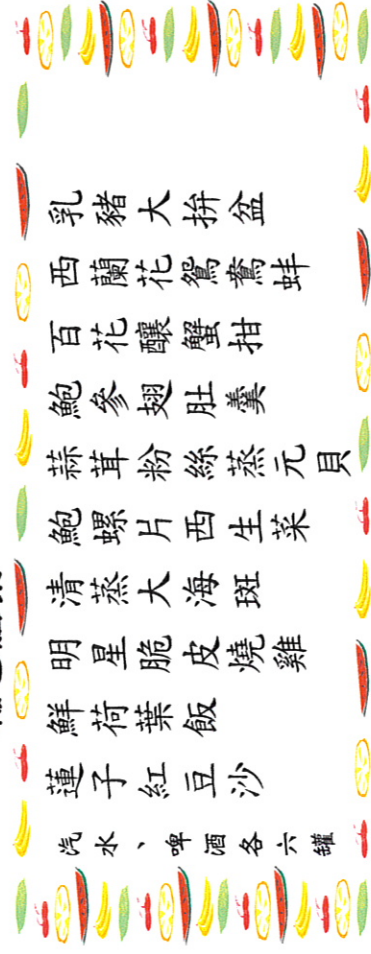 乳豬大拼盆
西蘭花鴛鴦蚌
百花釀蟹拑
鮑參翅肚羹
蒜茸粉絲蒸元貝
鮑螺片西生菜
清蒸大海斑
明星脆皮燒雞
鮮荷葉飯
蓮子紅豆沙
汽水、啤酒各六罐